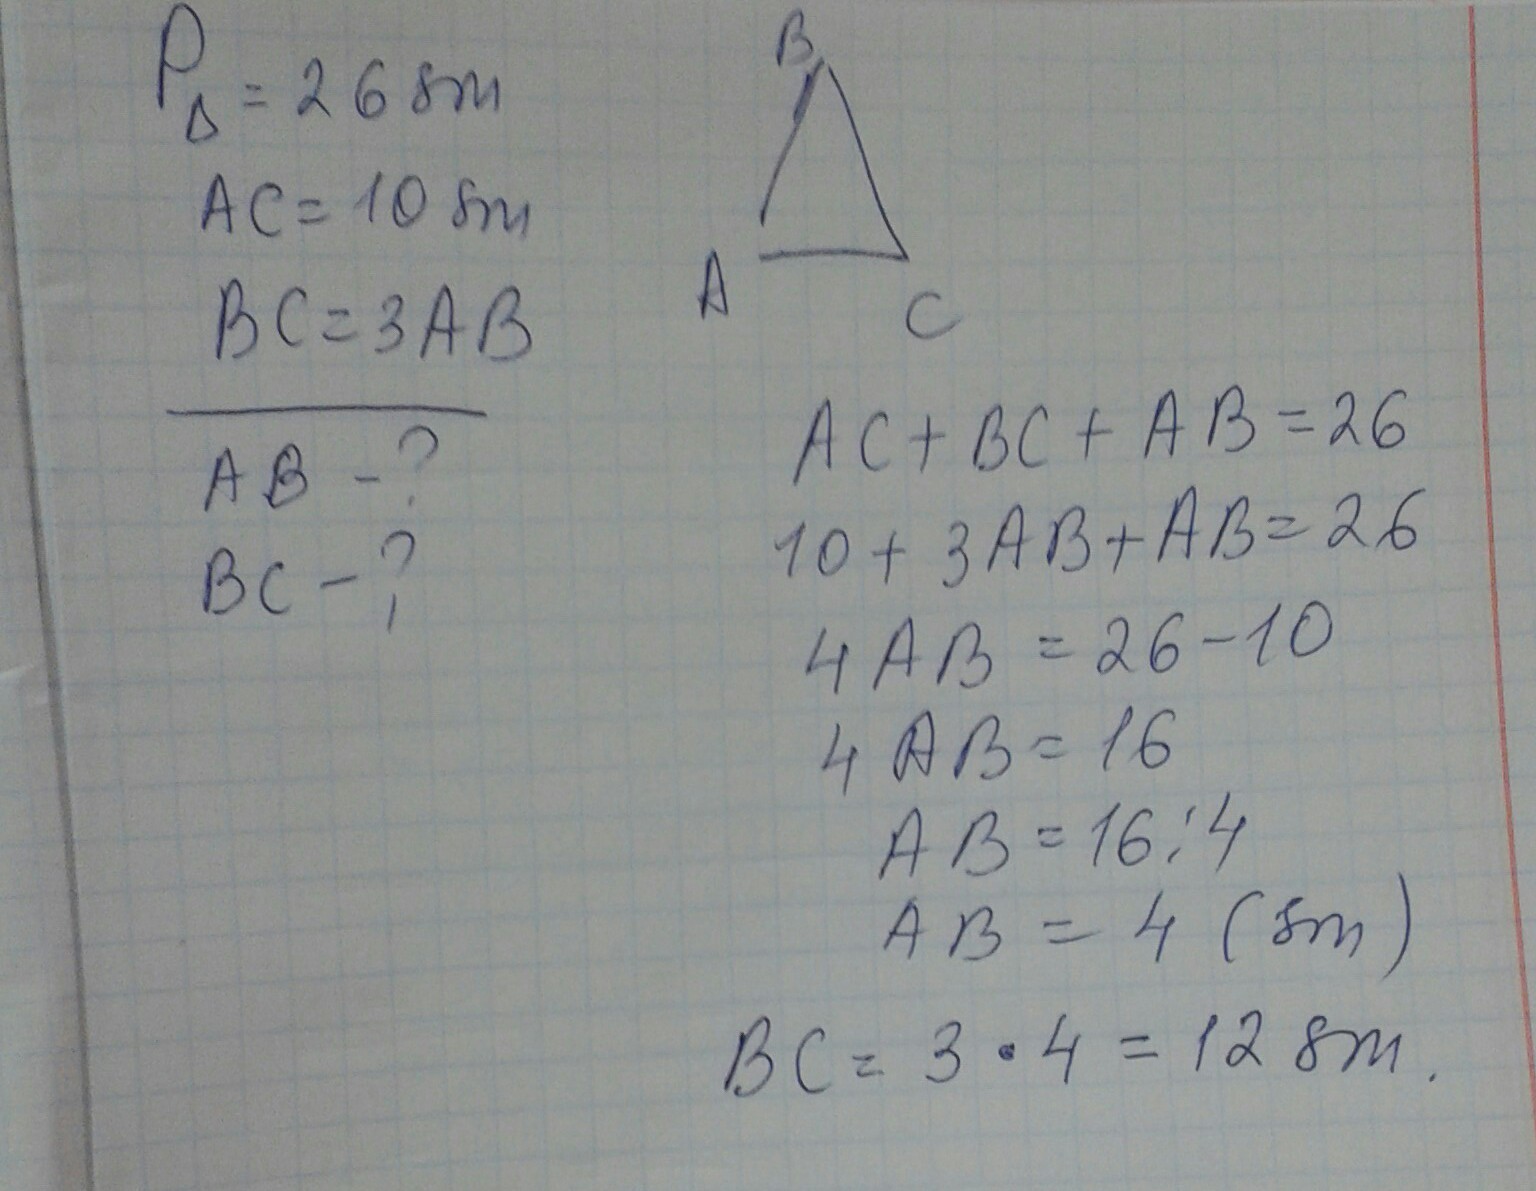 P△ = 26 sm
AC = 10 sm
BC = 3AB
AB - ?
BC - ?
B
A
C
AC + BC + AB = 26
10 + 3AB + AB = 26
4AB = 26 - 10
4AB = 16
AB = 16:4
AB = 4 (sm)
BC = 3 · 4 = 12 sm.